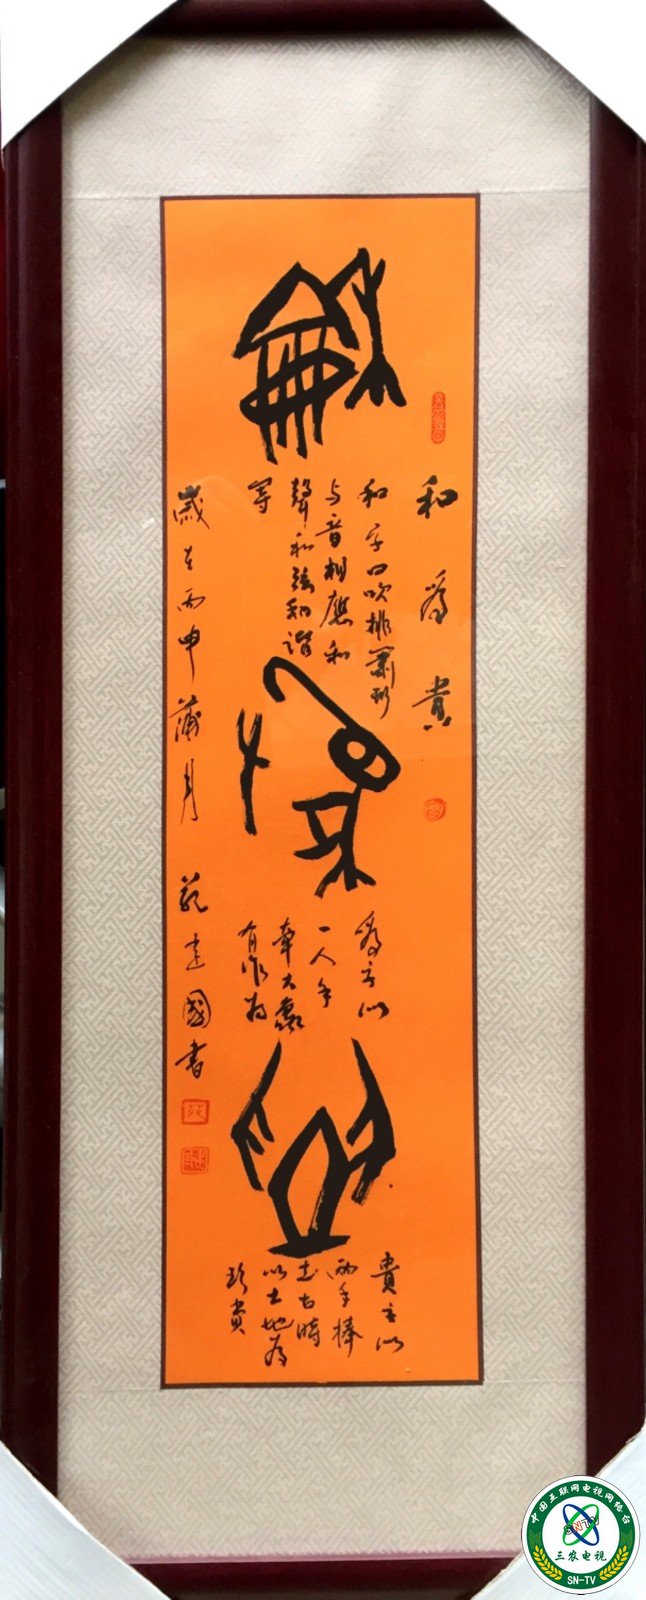 和為貴
和字口吹排蕭形
与音相應和
聲和弦和諧
等
為字似
一人手
牽大象
有作为
貴字似
兩手捧
土古時
以土地为
珍貴
歲在丙申蒲月 范建國書
中国互联网电视网络台
SNTV
三农电视
SN-TV